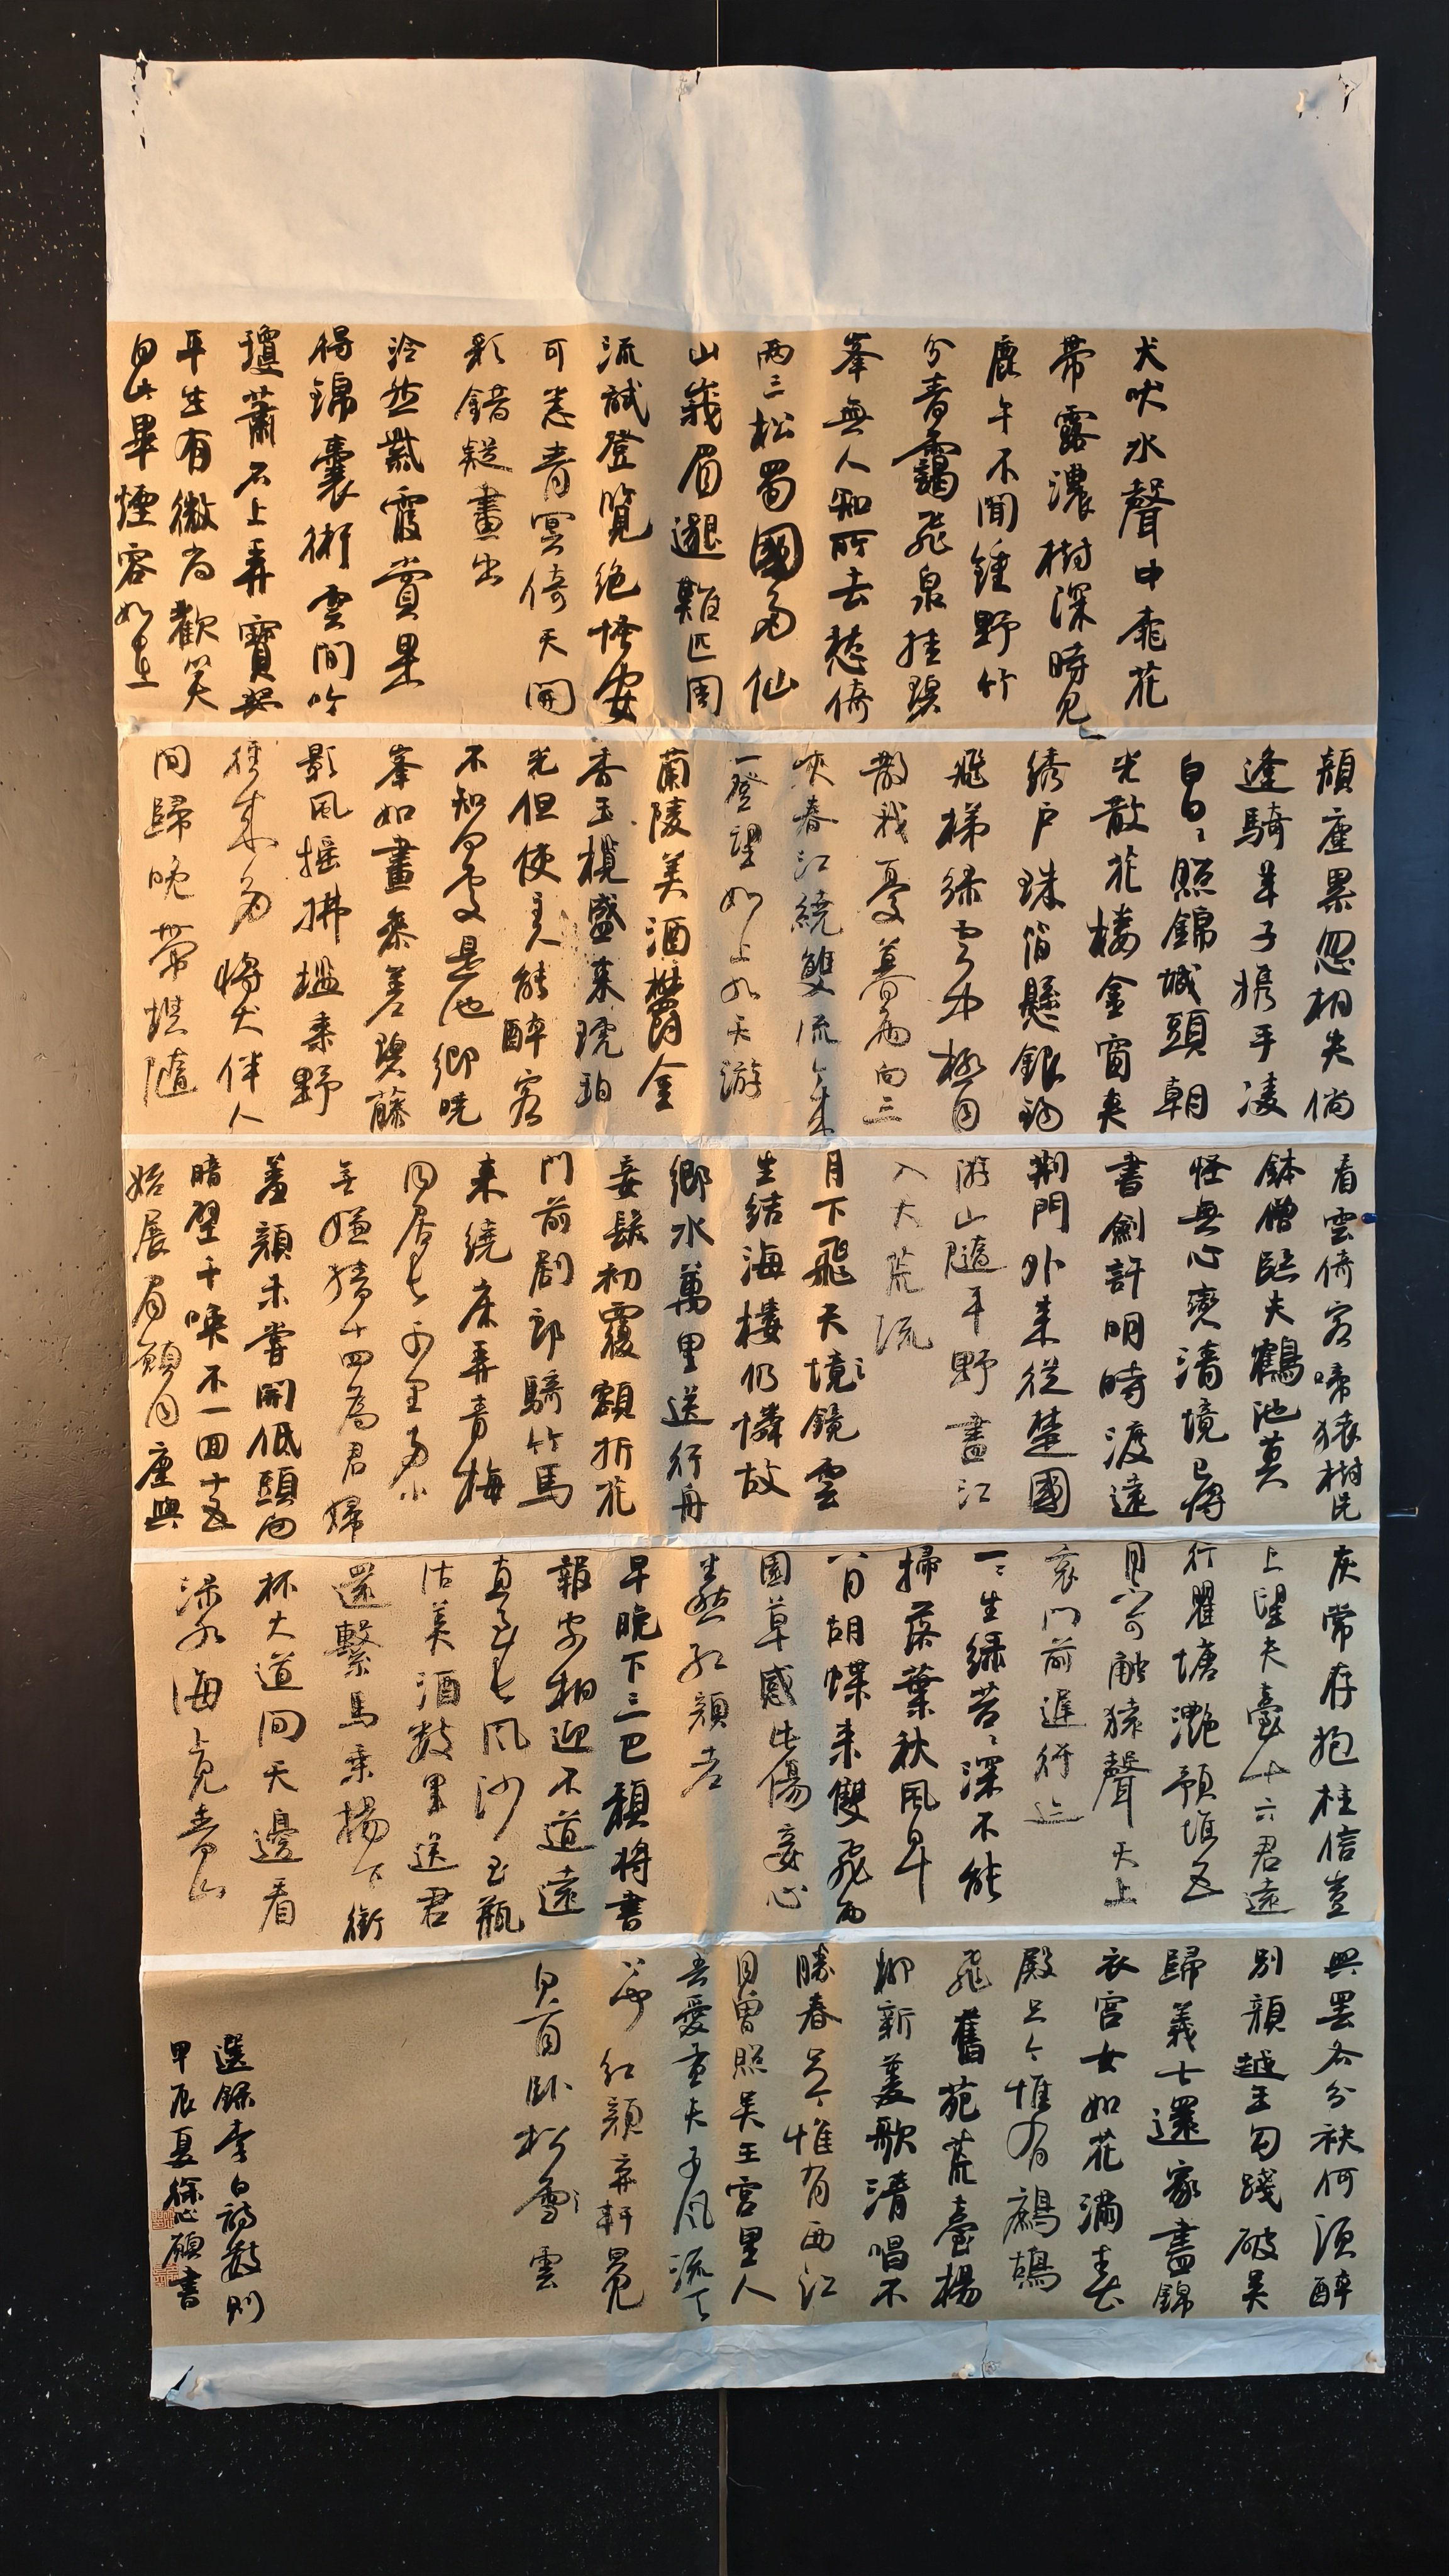 犬吠水聲中桃花
帶露濃樹深時見
鹿午不聞鍾野竹
分青靄飛泉挂碧
峯無人知所去愁倚
兩三松蜀國多仙
山峨眉邈難匹周
流試登覽絕怪安
可悉青冥倚天開
彩錯疑畫出
泠然紫霞賞果
得錦囊術雲間吟
瓊簫石上弄寶瑟
平生有微尚歡笑
自此畢煙容如在
顏塵累忽相失倘
逢騎羊子攜手凌
白日日照錦城頭朝
光散花樓金窗夾
綉户珠箔懸銀鈎
飛梯綠雲中極目
散我憂暮雨向三
峽春江繞雙流今來
一登望如上九天游
蘭陵美酒鬱金
香玉椀盛来琥珀
光但使主人能醉客
不知何處是他鄉曉
峯如畫參差碧藤
影風搖拂檻垂野
徑來多將犬伴人
間歸晚帶樵隨
看雲倚客啼猿樹洗
鉢僧臨失鶴池莫
怪無心戀清境已將
書劍許明時渡遠
荆門外来從楚國
游山隨平野盡江
入大荒流
月下飛天境鏡雲
生結海樓仍憐故
鄉水萬里送行舟
妾髮初覆額折花
門前劇郎騎竹馬
来繞床弄青梅
同居長干里兩小
無嫌猜十四為君婦
羞顏未嘗開低頭向
暗壁千喚不一回十五
始展眉願同塵與
灰常存抱柱信豈
上望夫臺十六君遠
行瞿塘灧預堆五
月不可觸猿聲天上
哀門前遲行迹
一一生綠苔苔深不能
掃落葉秋風早
八月胡蝶来雙飛西
園草感此傷妾心
坐愁紅顏老
早晚下三巴預將書
報家相迎不道遠
直至長風沙玉瓶
沽美酒數里送君
還繫馬垂楊下銜
杯大道間天邊看
淥水海上見青山
興罷各分袂何須醉
别顏越王勾踐破吴
歸義士還家盡錦
衣宫女如花滿春
殿只今惟有鷓鴣
飛舊苑荒臺楊
柳新菱歌清唱不
勝春只今惟有西江
月曾照吴王宫里人
吾愛孟夫子風流天
下聞紅顏弃軒冕
白首卧松雲雲
選錄李白詩數則
甲辰夏徐心願書